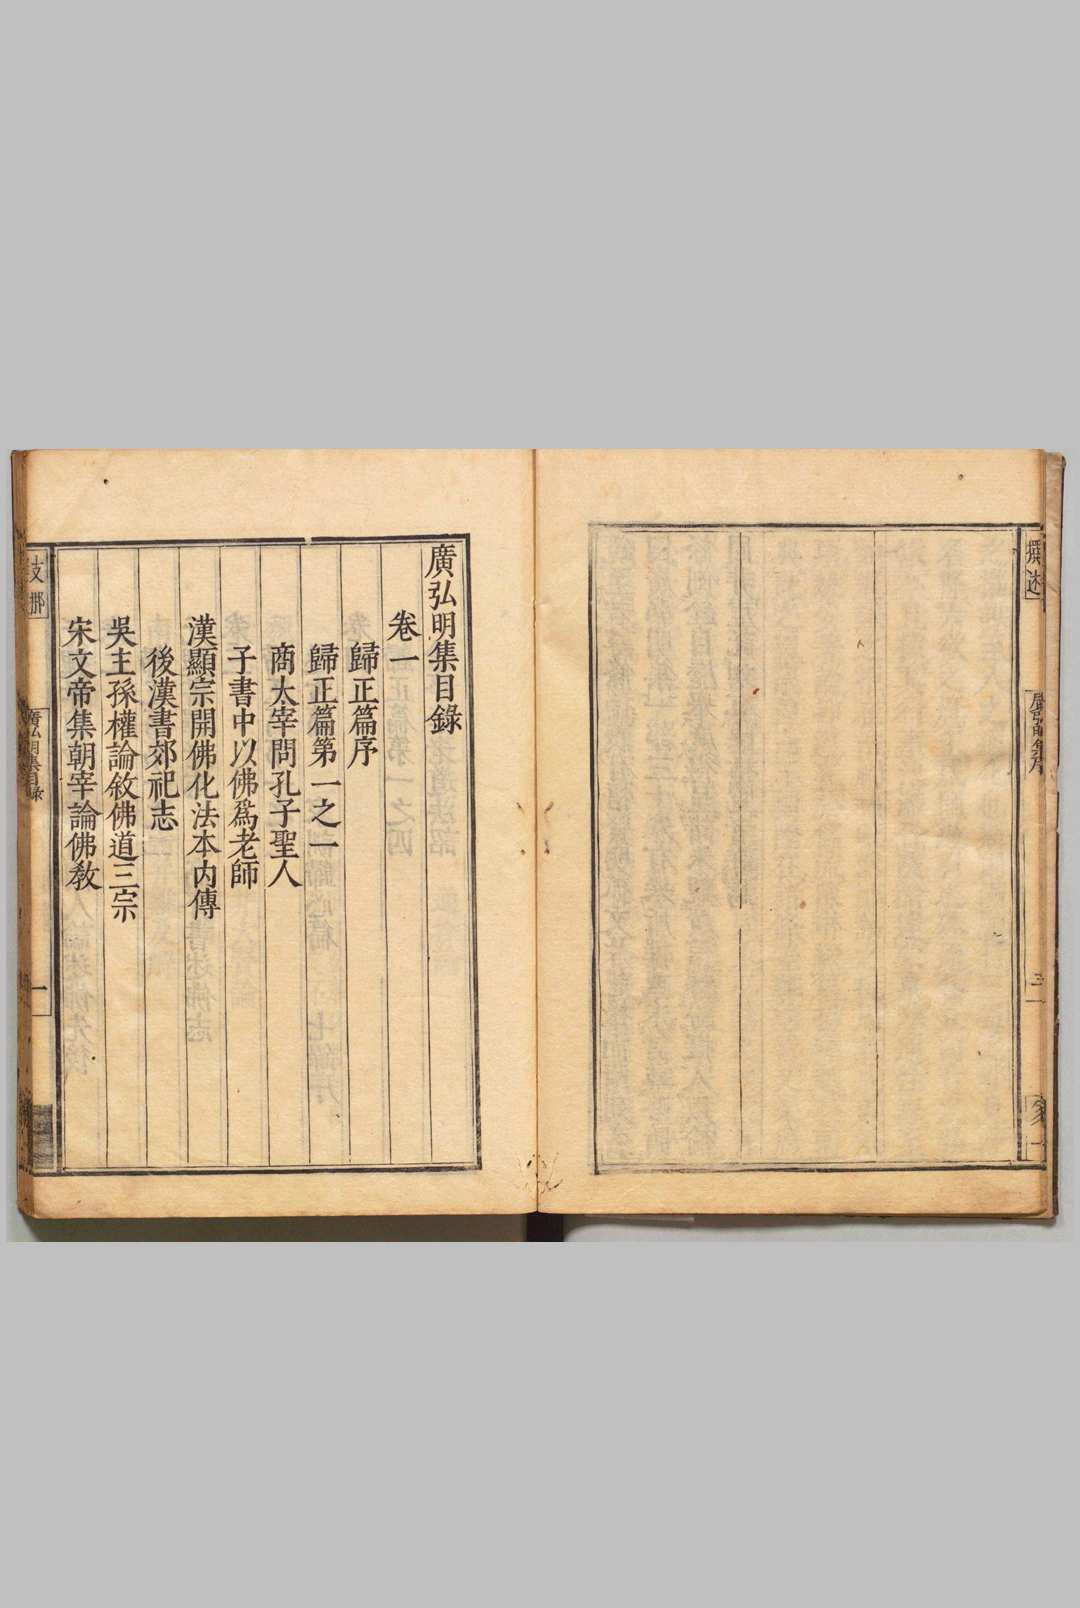 撰述
廣弘明集序
三
廣弘明集目錄
卷一
歸正篇序
歸正篇第一之一
商太宰問孔子聖人
子書中以佛爲老師
漢顯宗開佛化法本內傳
後漢書郊祀志
吳主孫權論敘佛道三宗
宋文帝集朝宰論佛教
支那
廣弘明集目錄
一